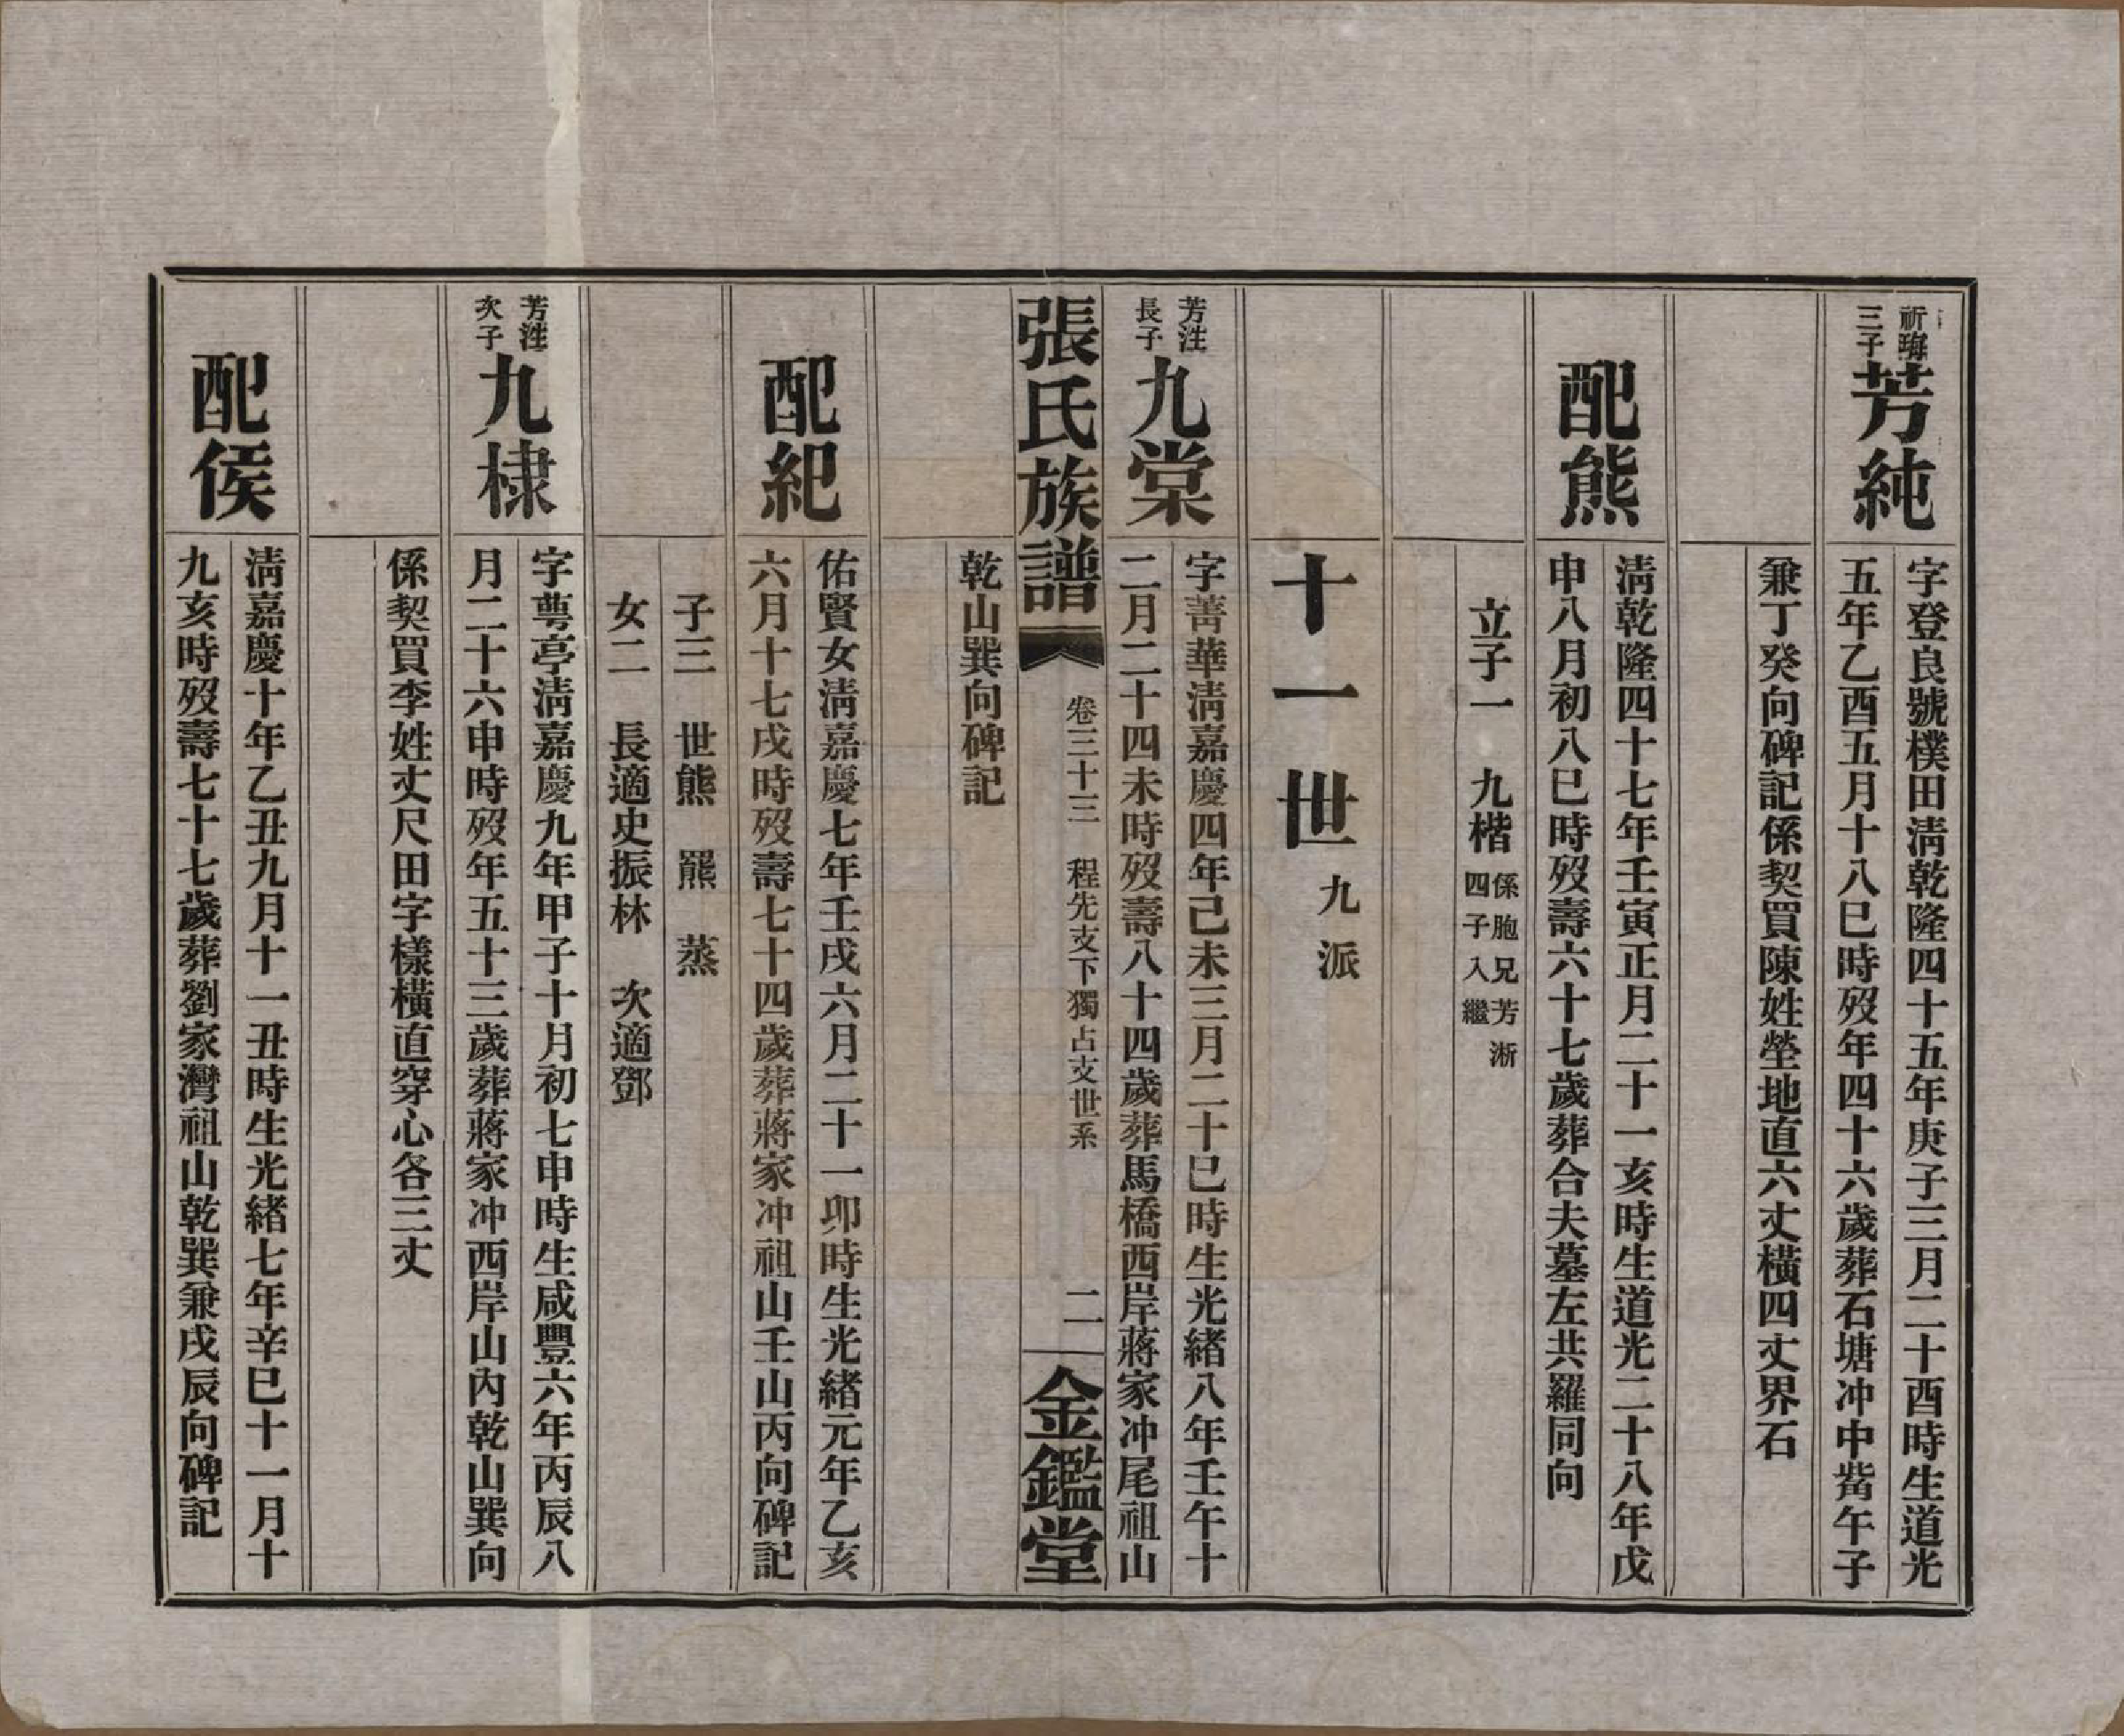 祈瑇三子
芳純
字登良號樸田淸乾隆四十五年庚子三月二十酉時生道光
五年乙酉五月十八巳時歿年四十六歲葬石塘冲中嘴午子
兼丁癸向碑記係契買陳姓塋地直六丈橫四丈界石
配熊
淸乾隆四十七年壬寅正月二十一亥時生道光二十八年戊
申八月初八巳時歿壽六十七歲葬合夫墓左共羅同向
立子一 九楷 係胞兄芳淅
四子入繼
十一世 九派
芳泩長子
九棠
字菁華淸嘉慶四年己未三月二十巳時生光緒八年壬午十
二月二十四未時歿壽八十四歲葬馬橋西岸蔣家冲尾祖山
張氏族譜 卷三十三 程先支下獨占支世系 二 金鑑堂
乾山巽向碑記
配紀
佑賢女淸嘉慶七年壬戌六月二十一卯時生光緒元年乙亥
六月十七戌時歿壽七十四歲葬蔣家冲祖山壬山丙向碑記
子三 世熊 羆 蒸
女二 長適史振林 次適鄧
芳泩次子
九棣
字萼亭淸嘉慶九年甲子十月初七申時生咸豐六年丙辰八
月二十六申時歿年五十三歲葬蔣家冲西岸山內乾山巽向
係契買李姓丈尺田字樣橫直穿心各三丈
配侯
淸嘉慶十年乙丑九月十一丑時生光緒七年辛巳十一月十
九亥時歿壽七十七歲葬劉家灣祖山乾巽兼戌辰向碑記